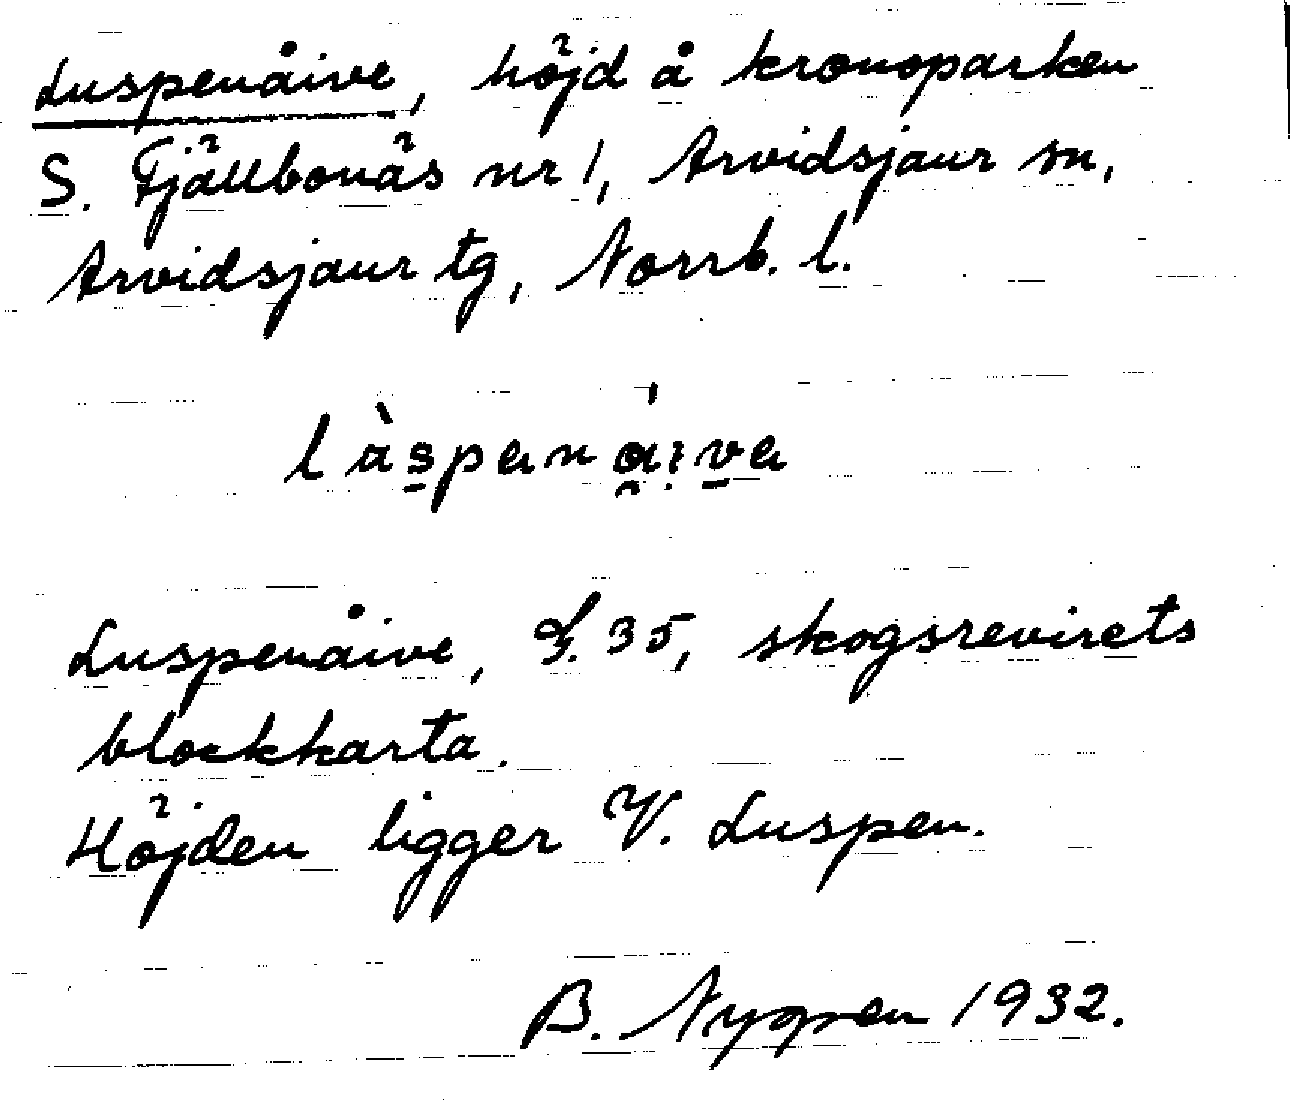 Luspenåive, höjd å kronoparken
S. Fjällbonäs nr 1, Arvidsjaur sn,
Arvidsjaur tg, Norrb. l.
Luspenåive, L. 35, skogsrevirets
blockkarta.
Höjden ligger V. Luspen.
B. Nygren 1932.